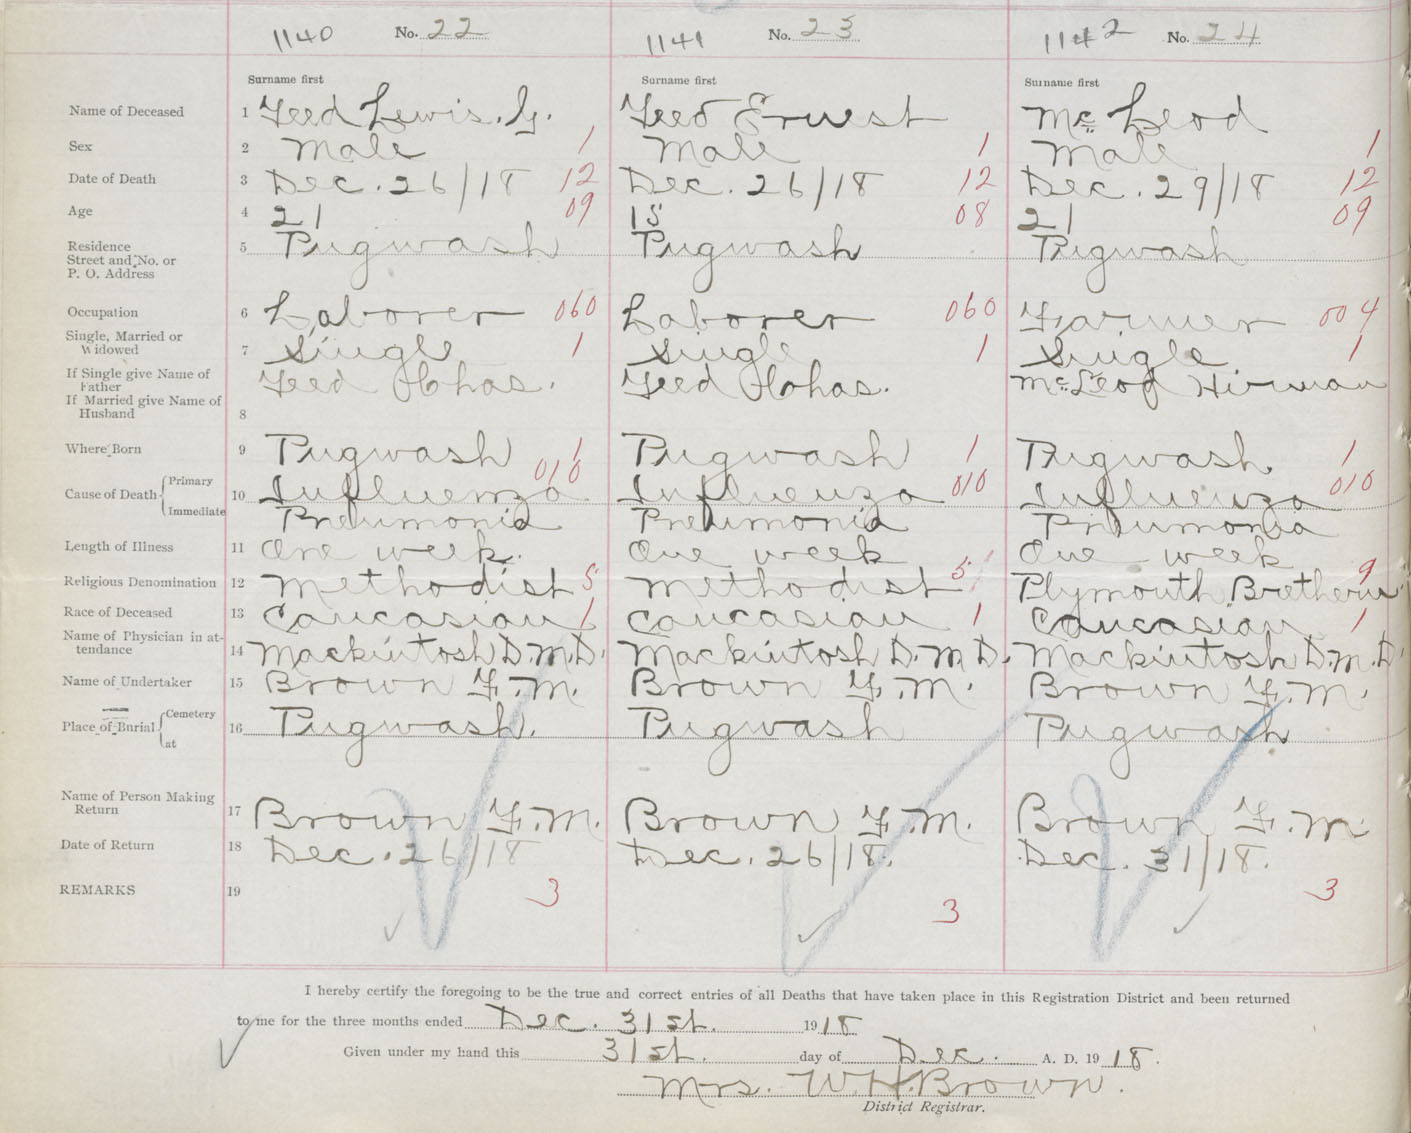 1140 No. 22 1141 No. 23 1142 No. 24
Surname first Surname first Surname first
Name of Deceased 1 Teed Lewis. G. Teed Ernest McLeod
Sex 2 Male 1 Male 1 Male 1
Date of Death 3 Dec. 26/18 12 Dec. 26/18 12 Dec. 29/18 12
Age 4 21 09 15 08 21 09
Residence 5 Pugwash Pugwash Pugwash
Street and No. or
P. O. Address
Occupation 6 Laborer 060 Laborer 060 Farmer 004
Single, Married or
Widowed 7 Single 1 Single 1 Single 1
If Single give Name of
Father Teed Teed McLeod
If Married give Name of
Husband 8
Where Born 9 Pugwash 1 Pugwash 1 Pugwash. 1
Cause of Death { Primary 10 Influenza 010 Influenza 010 Influenza 010
Immediate Pneumonia Pneumonia Pneumonia
Length of Illness 11 One week. One week One week
Religious Denomination 12 Methodist 5 Methodist 5 Plymouth Bretheren 9
Race of Deceased 13 Caucasian 1 Caucasian 1 Caucasian 1
Name of Physician in at-
tendance 14 Mackintosh D. M. D. Mackintosh D. M. D. Mackintosh D. M. D.
Name of Undertaker 15 Brown F. M. Brown F. M. Brown F. M.
Place of Burial { Cemetery
at 16 Pugwash. Pugwash Pugwash
Name of Person Making
Return 17 Brown F. M. Brown F. M. Brown F. M.
Date of Return 18 Dec. 26/18 Dec. 26/18. Dec. 31/18.
REMARKS 19 3 3 3
I hereby certify the foregoing to be the true and correct entries of all Deaths that have taken place in this Registration District and been returned
to me for the three months ended Dec. 31st. 1918
Given under my hand this 31st. day of Dec. A. D. 1918.
Mrs. W. H. Brown.
District Registrar.